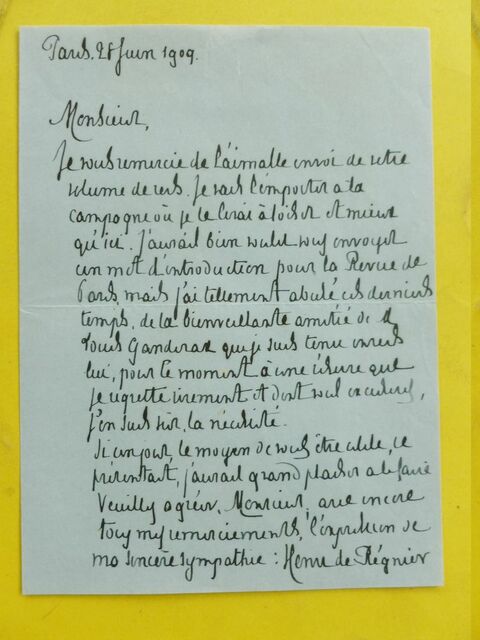 Paris. 28 Juin 1909.
Monsieur,
Je vous remercie de l'aimable envoi de votre
volume de vers. Je vais l'emporter à la
campagne où je le lirai à loisir et mieux
qu'ici. J'aurais bien voulu vous envoyer
un mot d'introduction pour la Revue de
Paris, mais j'ai tellement abusé ces derniers
temps, de la bienveillante amitié de
Louis Ganderax que je suis tenu envers
lui, pour le moment à une réserve que
je regrette vivement et dont vous excuserez,
j'en suis sûr, la nécessité.
Si un jour, le moyen de vous être utile, se
présentait, j'aurais grand plaisir à le faire
Veuillez agréer, Monsieur, avec encore
tous mes remerciements, l'expression de
ma sincère sympathie : Henri de Régnier